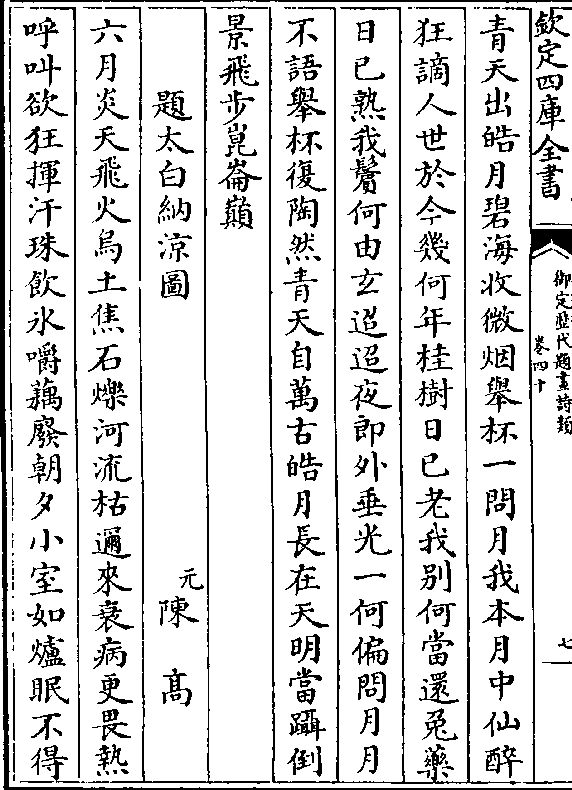 欽定四庫全書
御定歷代題畫詩類
卷四十
七
青天出皓月碧海收微烟舉杯一問月我本月中仙醉
狂謫人世於今幾何年桂樹日已老我別何當還兔藥
日已熟我鬢何由玄迢迢夜郎外垂光一何偏問月月
不語舉杯復陶然青天自萬古皓月長在天明當躡倒
景飛步崑崙巔
題太白納涼圖
元陳高
六月炎天飛火烏土焦石爍河流枯邇來衰病更畏熱
呼叫欲狂揮汗珠飲氷嚼藕廢朝夕小室如爐眠不得